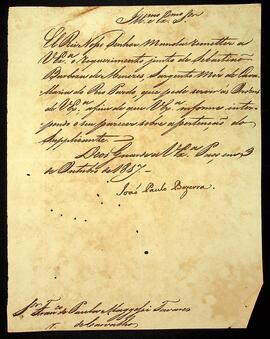 Illmo Exmo Snr
El Rey Nosso Senhor Manda remetter a
V Exa o requerimento junto de Sebastião
Barbosa de Menezes Sargento Mor de
Maria do Rio Pardo, que pede servir as Ordens
de V Exa, para que V Exa informe inter
pondo o seu parecer sobre a pertenção do
Supplicante.
Deos Guarde a V Exa Paço em 3
de Outubro de 1817.
João Paulo Bezerra.
Snr Franco de Paula Maggessi Tavares
de Carvalho